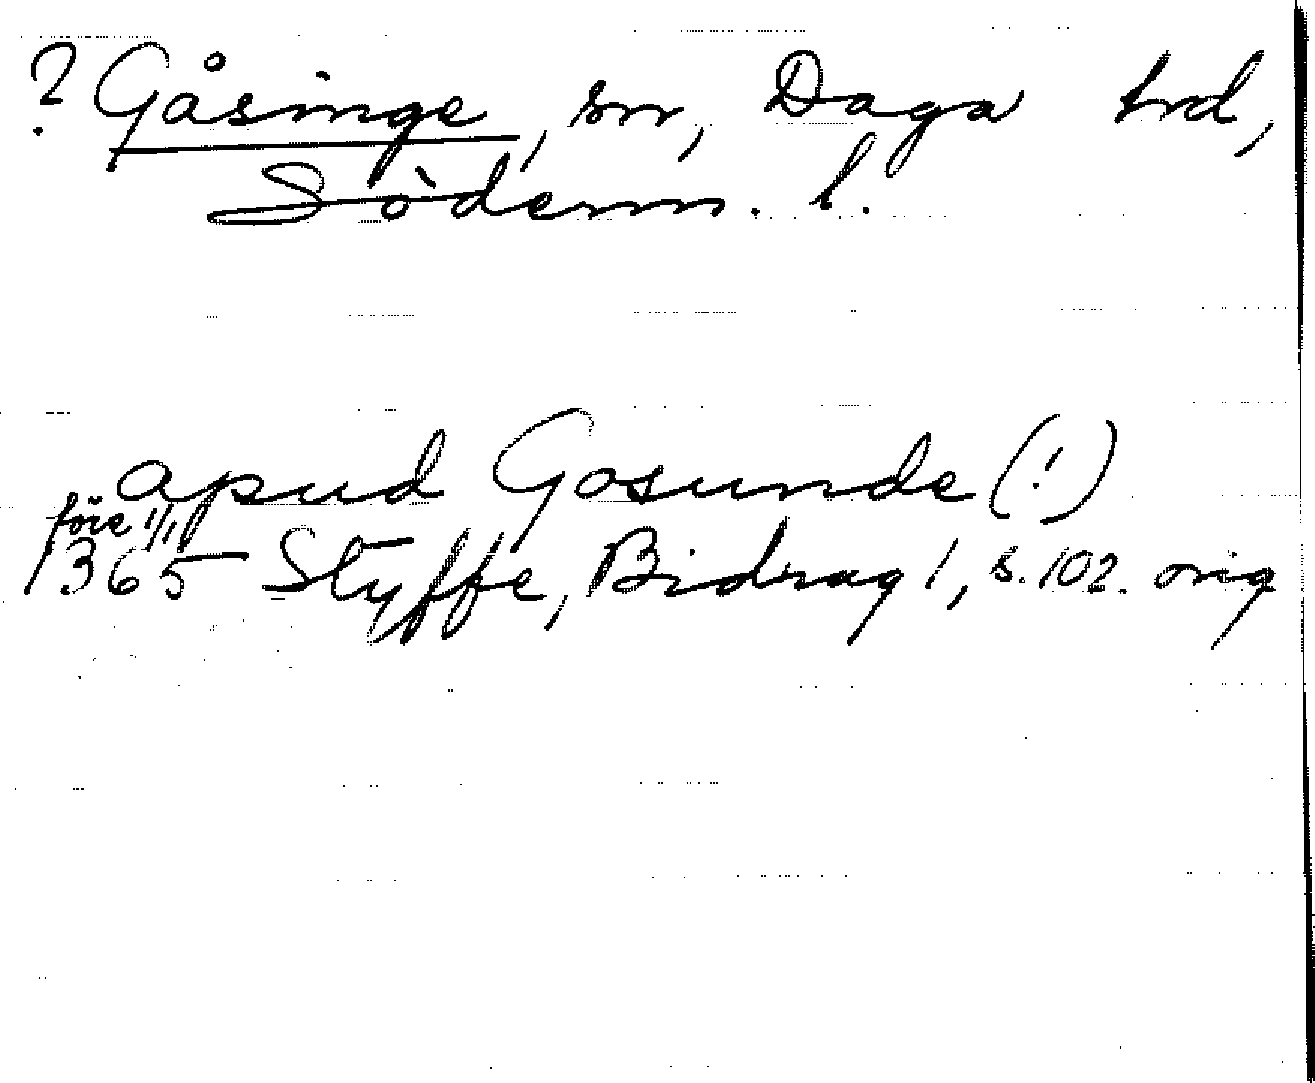 ? Gåsinge, sn, Daga hd,
Söderm. l.
apud Gosunde (!)
före 1/11
1365 Styffe, Bidrag 1, s. 102. orig